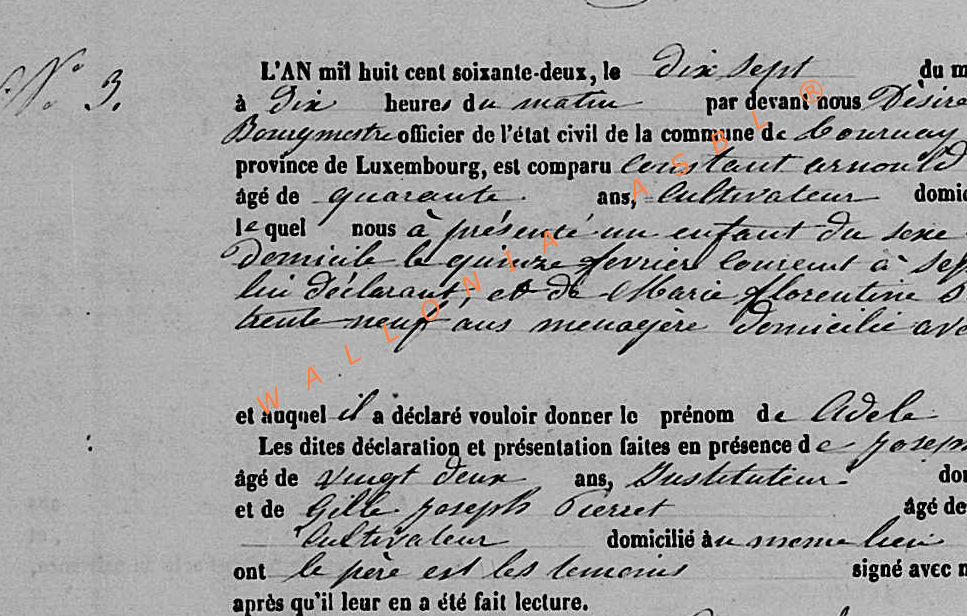 N° 3.
L'AN mil huit cent soixante-deux, le dix sept du m
à dix heures du matin par devant nous Désiré
Bourgmestre officier de l'état civil de la commune de Tournay
province de Luxembourg, est comparu Constant Arnould
âgé de quarante ans, Cultivateur domici
lequel nous à présenté un enfant du sexe
Domicile le quinze fevrier courent à sep
lui déclarant, et de Marie florentine
trente neuf ans menagère domicilié ave
et auquel il a déclaré vouloir donner le prénom de Adele
Les dites déclaration et présentation faites en présence de joseph
âgé de vingt deux ans, Instituteur. do
et de Gille joseph Pierret âgé de
Cultivateur domicilié au meme lieu
ont le père est les temoins signé avec n
après qu'il leur en a été fait lecture.
WALLONIA ASBL ®